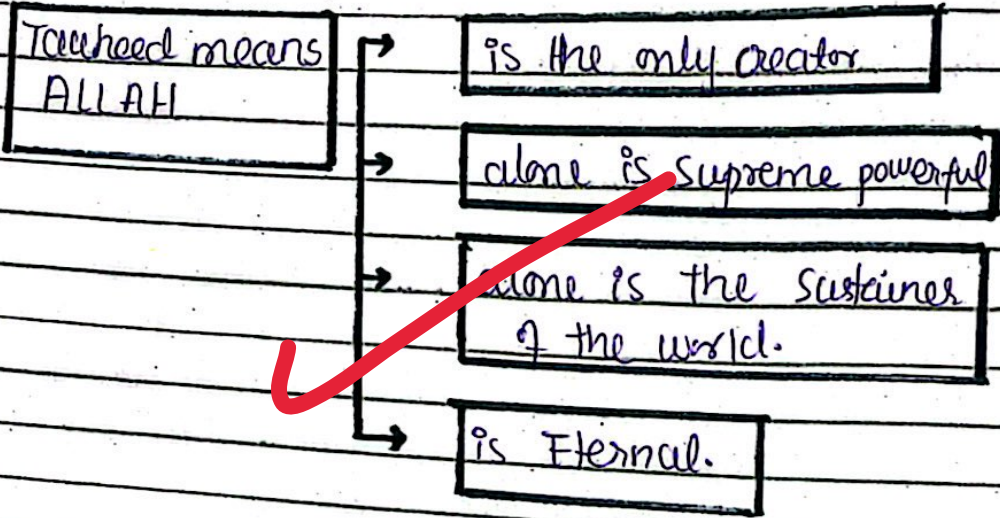 Tauheed means
ALLAH
is the only creator
alone is supreme powerful
alone is the sustainer
of the world.
is Eternal.